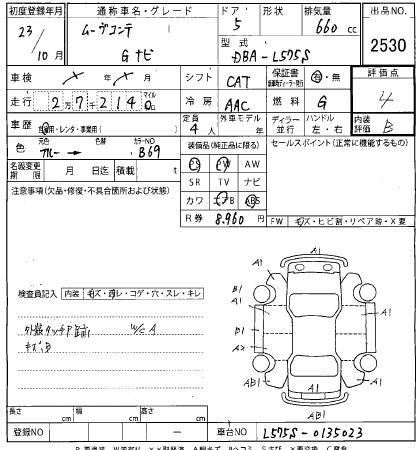 初度登録年月 通称車名・グレード ドア 形状 排気量 出品NO.
23/10月 ムーヴコンテ 5 660cc 2530
Gナビ 型式 DBA-L575S
車検 × 年 × 月 シフト CAT 保証書 有・無 評価点
走行 2万7千214 マイル km 冷房 AAC 燃料 G 4
車歴 自家用・レンタ・事業用( ) 定員 4人 外車モデル 年 ディーラー 並行 ハンドル 左・右 内装評価 B
色 元色 ブルー → 色替 カラーNO B69 装備品(純正品に限る) セールスポイント(正常に機能するもの)
名義変更期限 月 日迄 積載 t PS PW AW
SR TV ナビ
注意事項(欠品・修復・不具合箇所および状態) カワ エアB ABS
R券 8,960 FW キズ・ヒビ割・リペア跡・X要
検査員記入 内装 キズ・汚レ・コゲ・穴・スレ・キレ
キズ、B
A1
A1 A1
A1 A1
B1 A1
A2
AB1 A1
AB1
長さ cm 幅 cm 高さ cm
登録NO — 車台NO L575S-0135023